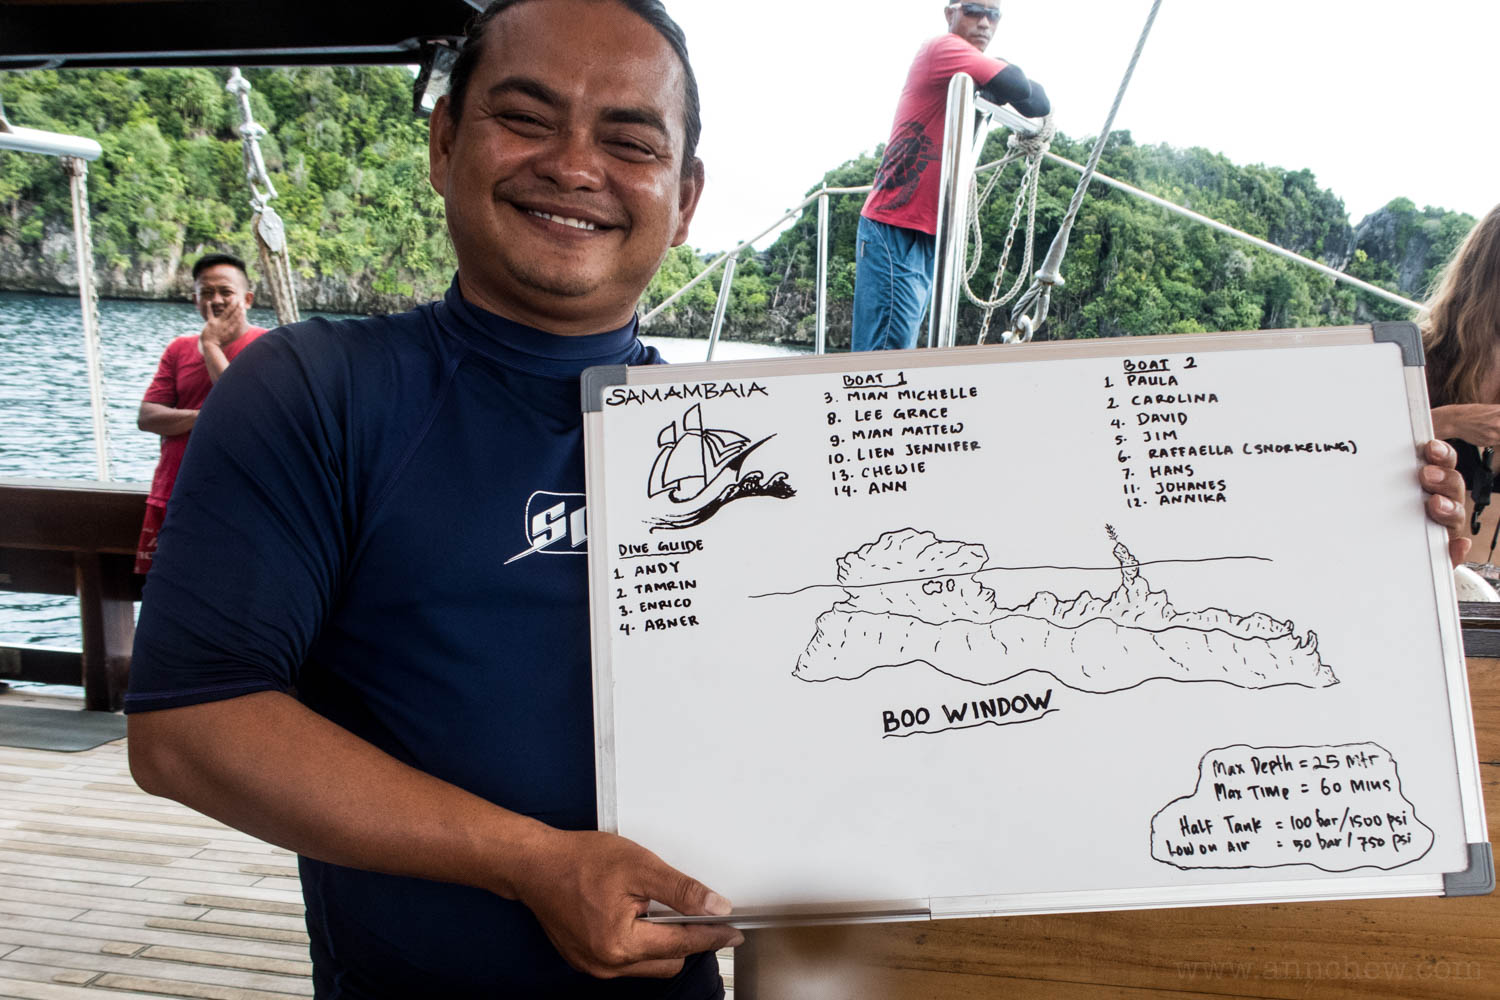 SAMAMBAIA
BOAT 1
3. MIAN MICHELLE
8. LEE GRACE
9. MIAN MATTEW
10. LIEN JENNIFER
13. CHEWIE
14. ANN
BOAT 2
1. PAULA
2. CAROLINA
4. DAVID
5. JIM
6. RAFFAELLA (SNORKELING)
7. HANS
11. JOHANES
12. ANNIKA
DIVE GUIDE
1. ANDY
2. TAMRIN
3. ENRICO
4. ABNER
BOO WINDOW
Max Depth = 25 Mtr
Max Time = 60 Mins
Half Tank = 100 bar/1500 psi
Low on Air = 50 bar/750 psi
www.annchew.com